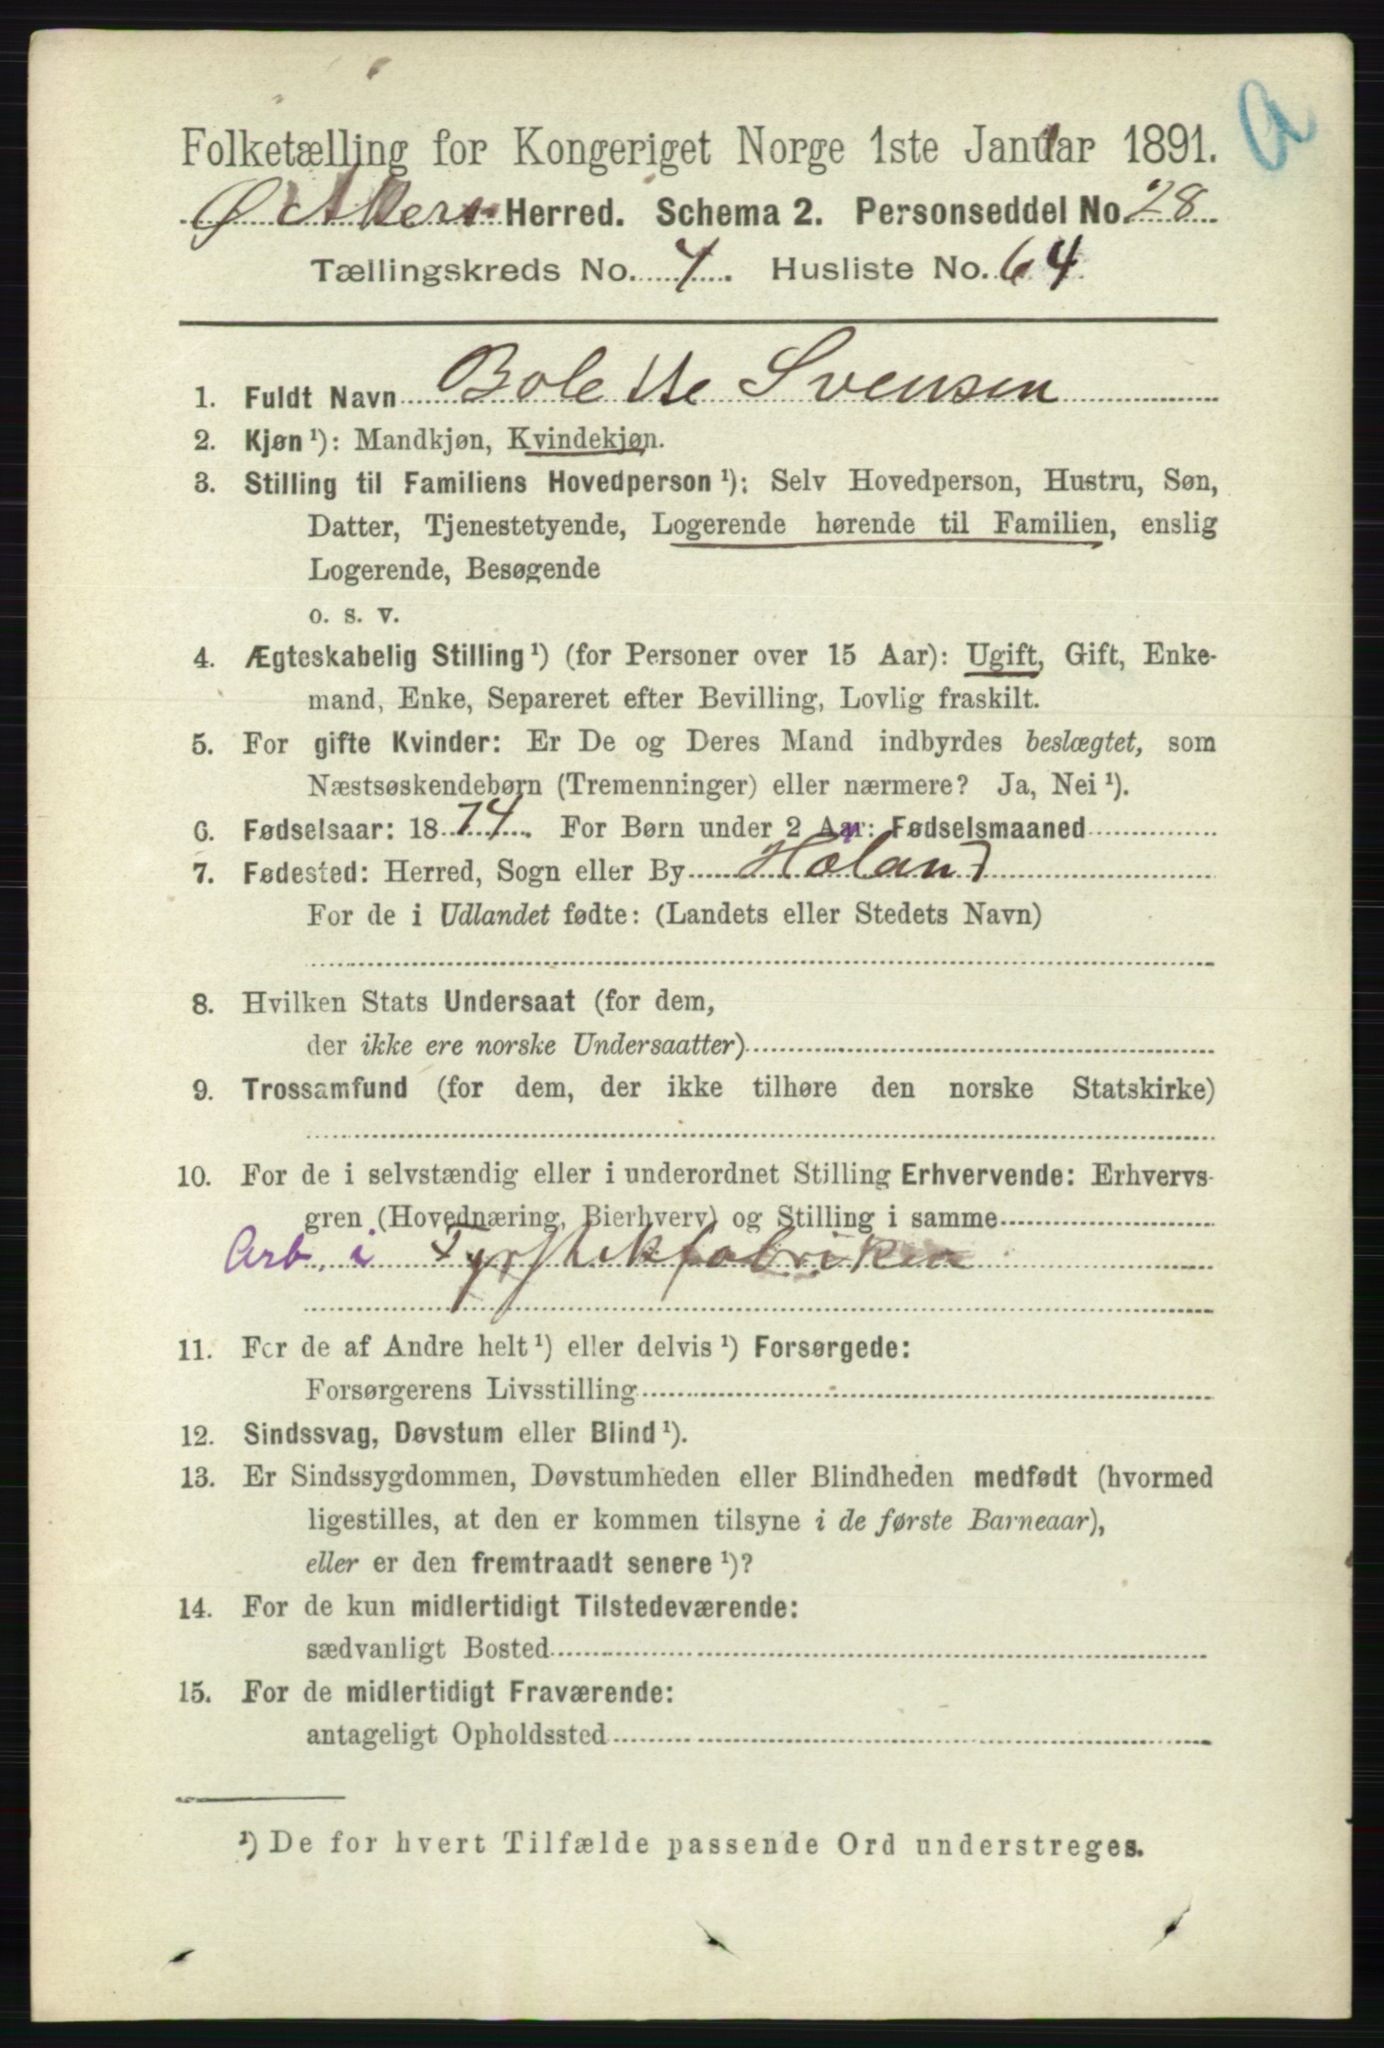 a
Folketælling for Kongeriget Norge 1ste Januar 1891.
Ø. Akers Herred. Schema 2. Personseddel No. 28
Tællingskreds No. 7. Husliste No. 64
1. Fuldt Navn Bolette Svensen
2. Kjøn ¹): Mandkjøn, Kvindekjøn.
3. Stilling til Familiens Hovedperson ¹): Selv Hovedperson, Hustru, Søn,
Datter, Tjenestetyende, Logerende hørende til Familien, enslig
Logerende, Besøgende
o. s. v.
4. Ægteskabelig Stilling ¹) (for Personer over 15 Aar): Ugift, Gift, Enke-
mand, Enke, Separeret efter Bevilling, Lovlig fraskilt.
5. For gifte Kvinder: Er De og Deres Mand indbyrdes beslægtet, som
Næstsøskendebørn (Tremenninger) eller nærmere? Ja, Nei ¹).
6. Fødselsaar: 1874. For Børn under 2 Aar: Fødselsmaaned
7. Fødested: Herred, Sogn eller By Høland
For de i Udlandet fødte: (Landets eller Stedets Navn)
8. Hvilken Stats Undersaat (for dem,
der ikke ere norske Undersaatter)
9. Trossamfund (for dem, der ikke tilhøre den norske Statskirke)
10. For de i selvstændig eller i underordnet Stilling Erhvervende: Erhvervs-
gren (Hovednæring, Bierhverv) og Stilling i samme
Arb. i Fyrstikfabriken
11. For de af Andre helt ¹) eller delvis ¹) Forsørgede:
Forsørgerens Livsstilling
12. Sindssvag, Døvstum eller Blind ¹).
13. Er Sindssygdommen, Døvstumheden eller Blindheden medfødt (hvormed
ligestilles, at den er kommen tilsyne i de første Barneaar),
eller er den fremtraadt senere ¹)?
14. For de kun midlertidigt Tilstedeværende:
sædvanligt Bosted
15. For de midlertidigt Fraværende:
antageligt Opholdssted
¹) De for hvert Tilfælde passende Ord understreges.